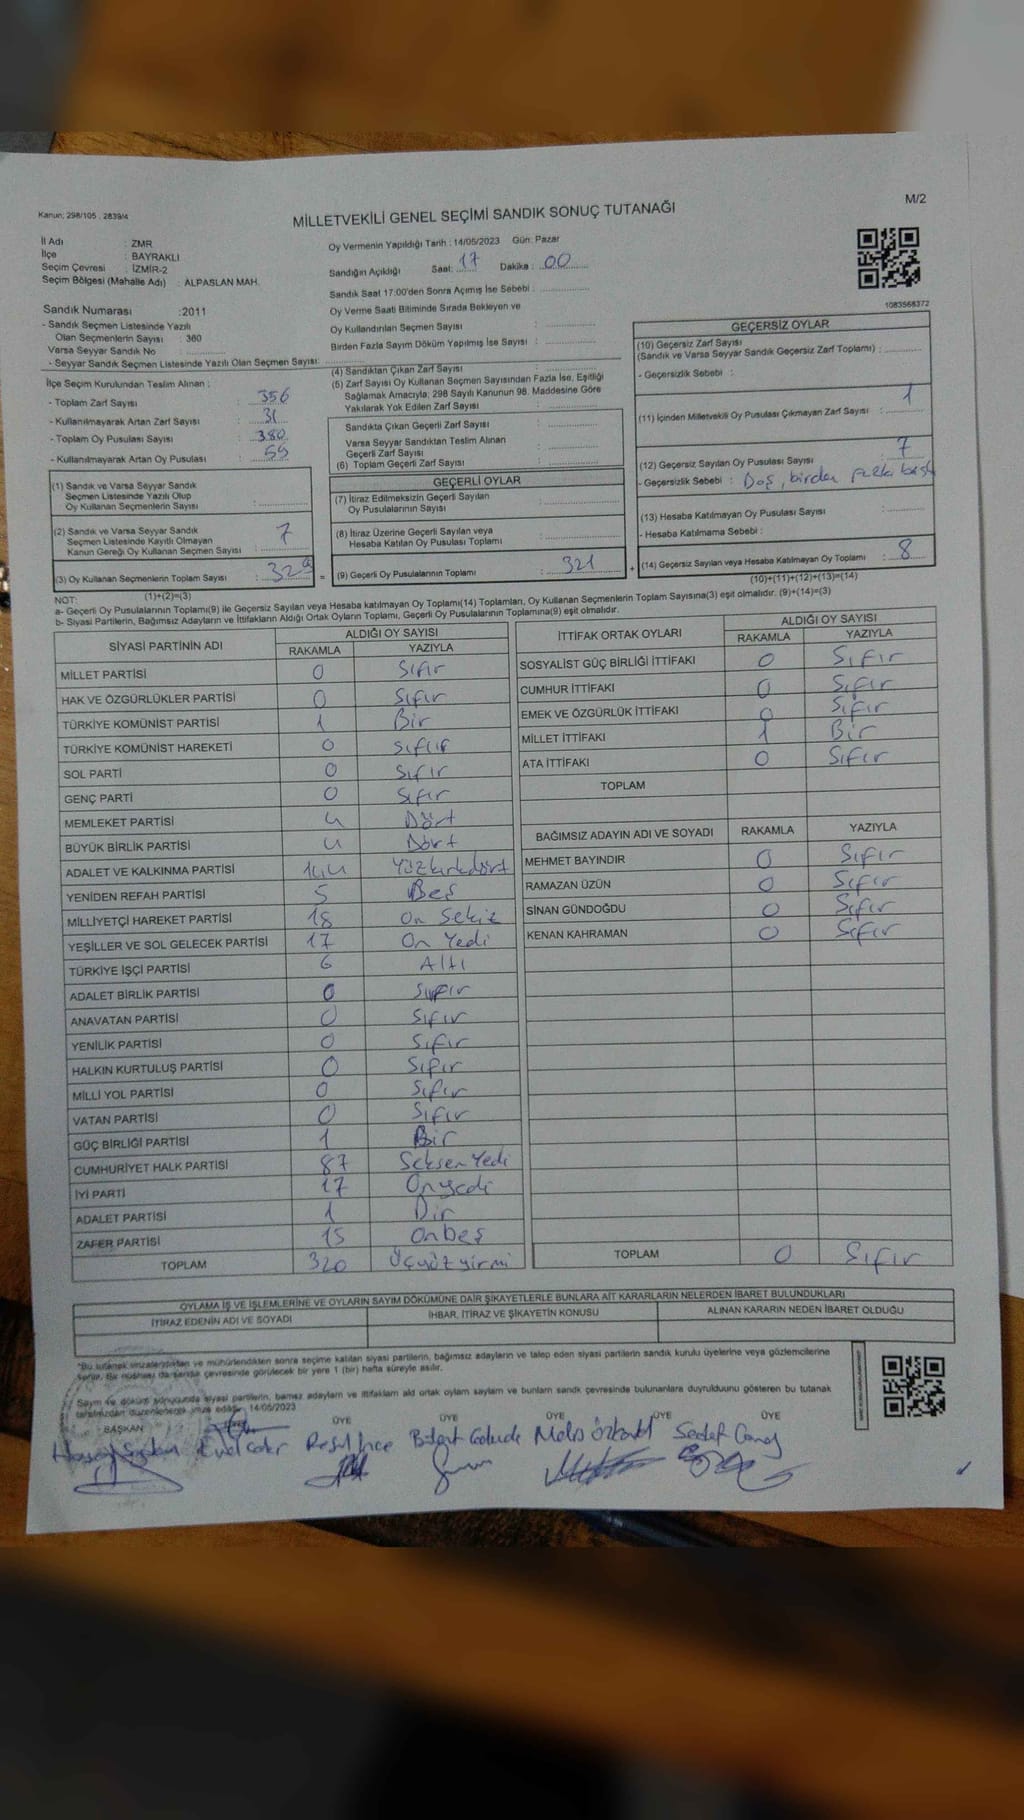 Kanun: 298/105 . 2839/4
MİLLETVEKİLİ GENEL SEÇİMİ SANDIK SONUÇ TUTANAĞI
M/2
İl Adı : ZMR
İlçe : BAYRAKLI
Seçim Çevresi : İZMİR-2
Seçim Bölgesi (Mahalle Adı) : ALPASLAN MAH.
Oy Vermenin Yapıldığı Tarih : 14/05/2023 Gün: Pazar
Sandığın Açıldığı Saat: 17 Dakika : 00
Sandık Saat 17:00'den Sonra Açımış İse Sebebi :
Oy Verme Saati Bitiminde Sırada Bekleyen ve
Oy Kullandırılan Seçmen Sayısı :
Birden Fazla Sayım Döküm Yapılmış İse Sayısı :
1083568372
Sandık Numarası : 2011
- Sandık Seçmen Listesinde Yazılı
Olan Seçmenlerin Sayısı : 360
Varsa Seyyar Sandık No :
- Seyyar Sandık Seçmen Listesinde Yazılı Olan Seçmen Sayısı:
İlçe Seçim Kurulundan Teslim Alınan :
- Toplam Zarf Sayısı : 356
- Kullanılmayarak Artan Zarf Sayısı : 31
- Toplam Oy Pusulası Sayısı : 380
- Kullanılmayarak Artan Oy Pusulası : 55
(1) Sandık ve Varsa Seyyar Sandık
Seçmen Listesinde Yazılı Olup
Oy Kullanan Seçmenlerin Sayısı :
(2) Sandık ve Varsa Seyyar Sandık
Seçmen Listesinde Kayıtlı Olmayan
Kanun Gereği Oy Kullanan Seçmen Sayısı : 7
(3) Oy Kullanan Seçmenlerin Toplam Sayısı : 329 =
(1)+(2)=(3)
(4) Sandıktan Çıkan Zarf Sayısı :
(5) Zarf Sayısı Oy Kullanan Seçmen Sayısından Fazla İse, Eşitliği
Sağlamak Amacıyla; 298 Sayılı Kanunun 98. Maddesine Göre
Yakılarak Yok Edilen Zarf Sayısı :
Sandıkta Çıkan Geçerli Zarf Sayısı :
Varsa Seyyar Sandıktan Teslim Alınan
Geçerli Zarf Sayısı :
(6) Toplam Geçerli Zarf Sayısı :
GEÇERLİ OYLAR
(7) İtiraz Edilmeksizin Geçerli Sayılan
Oy Pusulalarının Sayısı :
(8) İtiraz Üzerine Geçerli Sayılan veya
Hesaba Katılan Oy Pusulası Toplamı :
(9) Geçerli Oy Pusulalarının Toplamı : 321 +
GEÇERSİZ OYLAR
(10) Geçersiz Zarf Sayısı
(Sandık ve Varsa Seyyar Sandık Geçersiz Zarf Toplamı) :
- Geçersizlik Sebebi :
(11) İçinden Milletvekili Oy Pusulası Çıkmayan Zarf Sayısı : 1
(12) Geçersiz Sayılan Oy Pusulası Sayısı : 7
- Geçersizlik Sebebi : Boş, birden fazla
(13) Hesaba Katılmayan Oy Pusulası Sayısı :
- Hesaba Katılmama Sebebi :
(14) Geçersiz Sayılan veya Hesaba Katılmayan Oy Toplamı : 8
(10)+(11)+(12)+(13)=(14)
NOT:
a- Geçerli Oy Pusulalarının Toplamı(9) ile Geçersiz Sayılan veya Hesaba katılmayan Oy Toplamı(14) Toplamları, Oy Kullanan Seçmenlerin Toplam Sayısına(3) eşit olmalıdır. (9)+(14)=(3)
b- Siyasi Partilerin, Bağımsız Adayların ve İttifakların Aldığı Ortak Oyların Toplamı, Geçerli Oy Pusulalarının Toplamına(9) eşit olmalıdır.
SİYASİ PARTİNİN ADI ALDIĞI OY SAYISI
RAKAMLA YAZIYLA
MİLLET PARTİSİ 0 Sıfır
HAK VE ÖZGÜRLÜKLER PARTİSİ 0 Sıfır
TÜRKİYE KOMÜNİST PARTİSİ 1 Bir
TÜRKİYE KOMÜNİST HAREKETİ 0 Sıfır
SOL PARTİ 0 Sıfır
GENÇ PARTİ 0 Sıfır
MEMLEKET PARTİSİ 4 Dört
BÜYÜK BİRLİK PARTİSİ 4 Dört
ADALET VE KALKINMA PARTİSİ 144 Yüzkırkdört
YENİDEN REFAH PARTİSİ 5 Beş
MİLLİYETÇİ HAREKET PARTİSİ 18 On Sekiz
YEŞİLLER VE SOL GELECEK PARTİSİ 17 On Yedi
TÜRKİYE İŞÇİ PARTİSİ 6 Altı
ADALET BİRLİK PARTİSİ 0 Sıfır
ANAVATAN PARTİSİ 0 Sıfır
YENİLİK PARTİSİ 0 Sıfır
HALKIN KURTULUŞ PARTİSİ 0 Sıfır
MİLLİ YOL PARTİSİ 0 Sıfır
VATAN PARTİSİ 0 Sıfır
GÜÇ BİRLİĞİ PARTİSİ 1 Bir
CUMHURİYET HALK PARTİSİ 87 Seksen Yedi
İYİ PARTİ 17 Onyedi
ADALET PARTİSİ 1 Bir
ZAFER PARTİSİ 15 Onbeş
TOPLAM 320 Üçyüzyirmi
İTTİFAK ORTAK OYLARI ALDIĞI OY SAYISI
RAKAMLA YAZIYLA
SOSYALİST GÜÇ BİRLİĞİ İTTİFAKI 0 Sıfır
CUMHUR İTTİFAKI 0 Sıfır
EMEK VE ÖZGÜRLÜK İTTİFAKI 0 Sıfır
MİLLET İTTİFAKI 1 Bir
ATA İTTİFAKI 0 Sıfır
TOPLAM
BAĞIMSIZ ADAYIN ADI VE SOYADI RAKAMLA YAZIYLA
MEHMET BAYINDIR 0 Sıfır
RAMAZAN ÜZÜN 0 Sıfır
SİNAN GÜNDOĞDU 0 Sıfır
KENAN KAHRAMAN 0 Sıfır
TOPLAM 0 Sıfır
OYLAMA İŞ VE İŞLEMLERİNE VE OYLARIN SAYIM DÖKÜMÜNE DAİR ŞİKAYETLERLE BUNLARA AİT KARARLARIN NELERDEN İBARET BULUNDUKLARI
İTİRAZ EDENİN ADI VE SOYADI İHBAR, İTİRAZ VE ŞİKAYETİN KONUSU ALINAN KARARIN NEDEN İBARET OLDUĞU
"Bu tutanak imzalandıktan ve mühürlendikten sonra seçime katılan siyasi partilerin, bağımsız adayların ve talep eden siyasi partilerin sandık kurulu üyelerine veya gözlemcilerine
verilir. Bir nüshası da sandık çevresinde görülecek bir yere 1 (bir) hafta süreyle asılır.
Sayım ve döküm sonucunda siyasi partilerin, bamsz adaylarn ve ittifaklarn ald ortak oylarn saylarn ve bunlarn sandk çevresinde bulunanlara duyrulduunu gösteren bu tutanak
tarafmzdan düzenlenerek imza edildi. 14/05/2023
BAŞKAN ÜYE ÜYE ÜYE ÜYE ÜYE
Resul İnce Melis Sedef